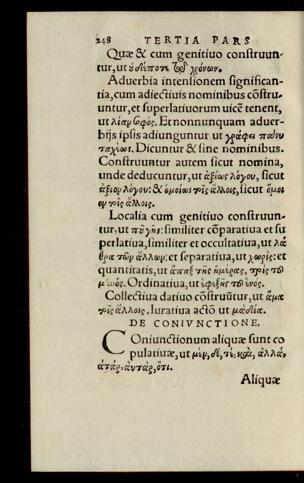 248 TERTIA PARS
Quæ & cum genitiuo construun-
tur, ut οὐδέποτε τῶν χρόνων.
Aduerbia intensionem significan-
tia, cum adiectiuis nominibus cõstru-
untur, et superlatiuorum uicẽ tenent,
ut λίαν σοφός. Et nonnunquam aduer-
bijs ipsis adiunguntur ut γράφει πάνυ
ταχέως. Dicuntur & sine nominibus.
Construuntur autem sicut nomina,
unde deducuntur, ut ἀξίως λόγου, sicut
ἄξιον λόγου: & ὁμοίως τοῖς ἄλλοις, sicut ὅμοι
ον τοῖς ἄλλοις.
Localia cum genitiuo construun-
tur, ut ποῦ γῆς: similiter cõparatiua et su
perlatiua, similiter et occultatiua, ut λά
θρα τῶν ἄλλων: et separatiua, ut χωρίς: et
quantitatis, ut ἅπαξ τῆς ἡμέρας, τρὶς τοῦ
μηνός. Ordinatiua, ut ἐφεξῆς τοῦ ἑνος.
Collectiua datiuo cõstruũtur, ut ἅμα
τοῖς ἄλλοις. Iuratiua actõ ut μὰ δία.
DE CONIVNCTIONE.
Coniunctionum aliquæ sunt co
pulatiuæ, ut μὲν, δὲ, τὲ, καὶ, ἀλλὰ,
ἀτὰρ, αὐτὰρ, ὅτι.
Aliquæ